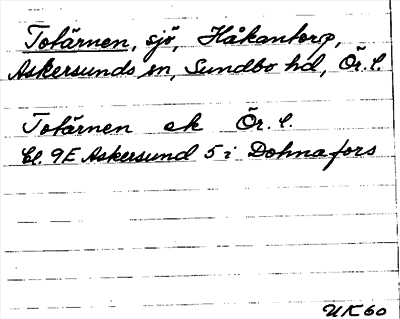 Totärnen, sjö, Håkantorp,
Askersunds sn, Sundbo hd, Ör. l.
Totärnen ek Ör. l.
bl. 9E Askersund 5 i Dohnafors
UK 60